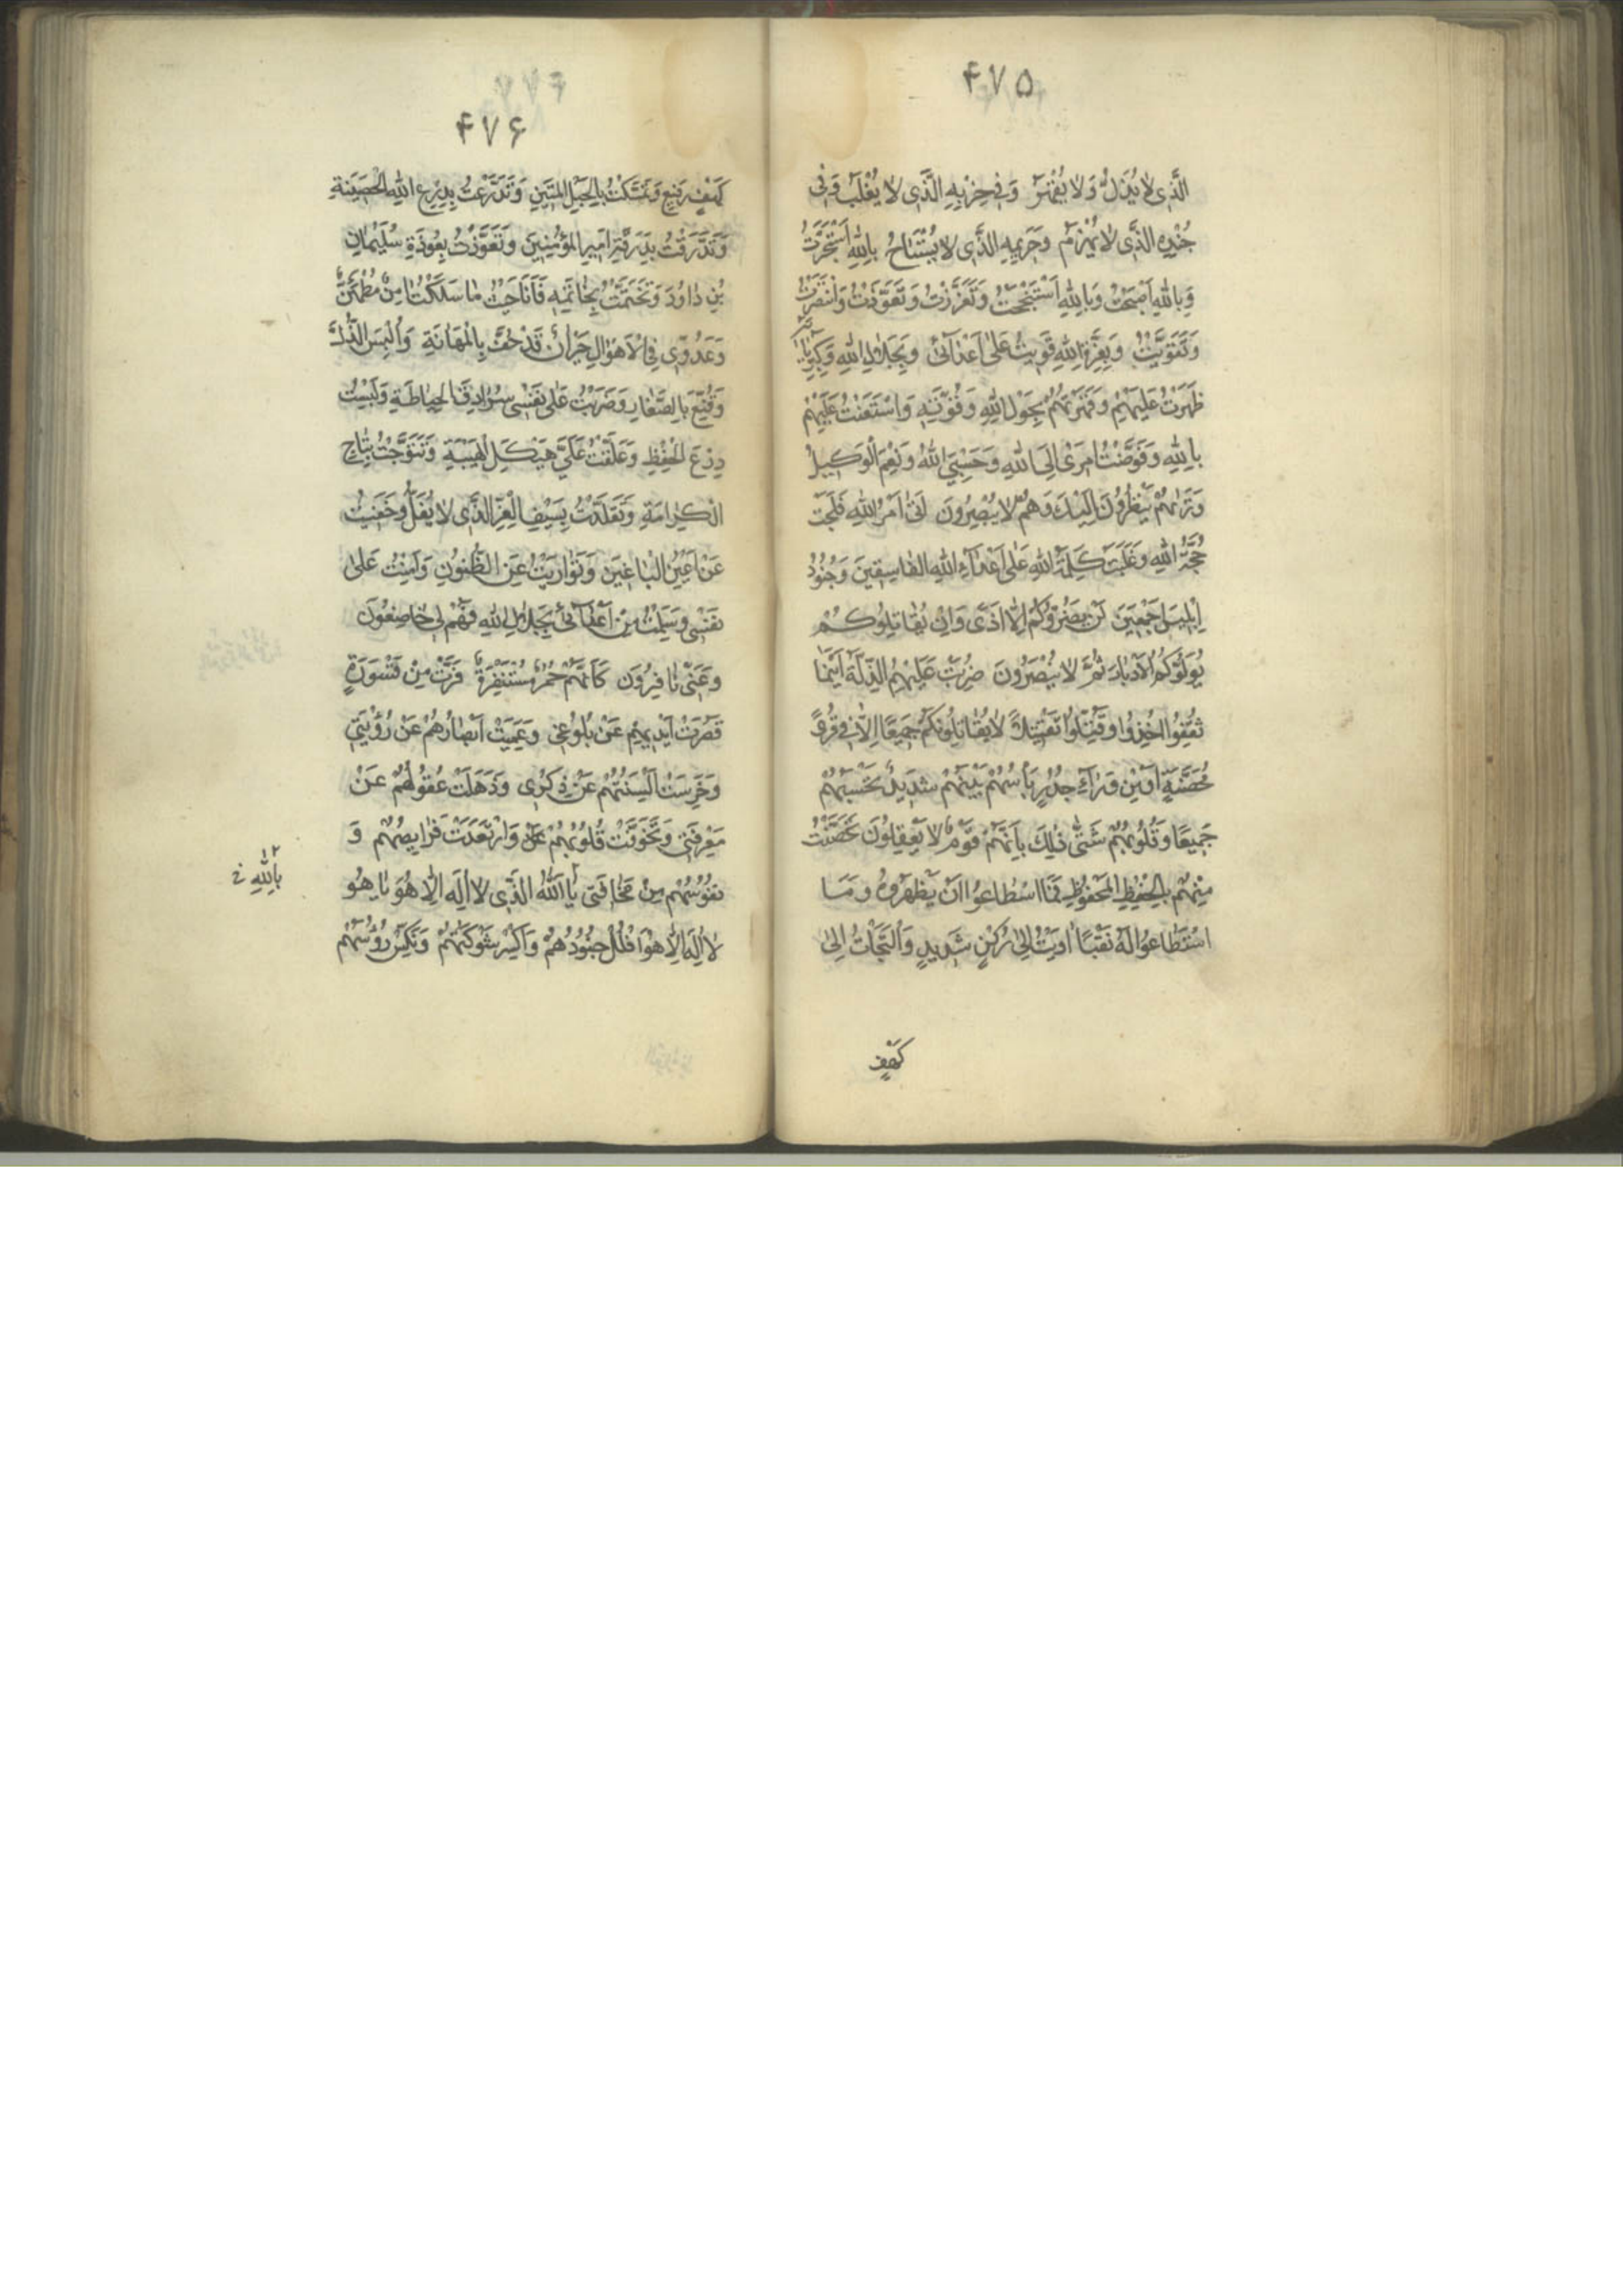 ۴۷۵
الَّذِی لا یُذَلُّ وَلا یُقْهَرُ وَفِی حِزْبِهِ الَّذِی لا یُغْلَبُ وَفِی
جُنْدِهِ الَّذِی لا یُهْزَمُ وَحَرِیمِهِ الَّذِی لا یُسْتَبَاحُ بِاللهِ اسْتَجَرْتُ
وَبِاللهِ اَصْبَحْتُ وَبِاللهِ اسْتَنْجَحْتُ وَتَعَزَّزْتُ وَتَعَوَّذْتُ وَانْتَصَرْتُ
وَتَقَوَّیْتُ وَبِعِزَّةِ اللهِ قَوِیتُ عَلیٰ اَعْدَآئِی وَبِجَلَالِ اللهِ وَکِبْرِیَائِهِ
ظَهَرْتُ عَلَیْهِمْ وَقَهَرْتُهُمْ بِحَوْلِ اللهِ وَقُوَّتِهِ وَاسْتَعَنْتُ عَلَیْهِمْ
بِاللهِ وَفَوَّضْتُ اَمْرِی اِلَی اللهِ وَحَسْبِیَ اللهُ وَنِعْمَ الْوَکِیلُ
وَتَرٰیهُمْ یَنْظُرُونَ اِلَیْکَ وَهُمْ لا یُبْصِرُونَ اَتٰی اَمْرُ اللهِ فَلَجَتْ
حُجَّةُ اللهِ وَغَلَبَتْ کَلِمَةُ اللهِ عَلیٰ اَعْدَآءِ اللهِ الفَاسِقِینَ وَجُنُودِ
اِبْلِیسَ اَجْمَعِینَ لَنْ یَضُرُّوکُمْ اِلَّا اَذًی وَاِنْ یُقَاتِلُوکُمْ
یُوَلُّوکُمُ الْاَدْبَارَ ثُمَّ لا یُنْصَرُونَ ضُرِبَتْ عَلَیْهِمُ الذِّلَّةُ اَیْنَمَا
ثُقِفُوا اُخِذُوا وَقُتِّلُوا تَقْتِیلًا لا یُقَاتِلُونَکُمْ جَمِیعًا اِلَّا فِی قُرًی
مُحَصَّنَةٍ اَوْ مِنْ وَرَآءِ جُدُرٍ بَاْسُهُمْ بَیْنَهُمْ شَدِیدٌ تَحْسَبُهُمْ
جَمِیعًا وَقُلُوبُهُمْ شَتّٰی ذٰلِکَ بِاَنَّهُمْ قَوْمٌ لا یَعْقِلُونَ تَحَصَّنْتُ
مِنْهُمْ بِالْحِفْظِ الْمَحْفُوظِ فَمَا اسْطَاعُوا اَنْ یَظْهَرُوهُ وَمَا
اسْتَطَاعُوا لَهُ نَقْبًا اَوَیْتُ اِلیٰ رُکْنٍ شَدِیدٍ وَالْتَجَاْتُ اِلیٰ
کَهْفٍ
۴۷۶
کَهْفٍ رَفِیعٍ وَتَمَسَّکْتُ بِالْحَبْلِ الْمَتِینِ وَتَدَرَّعْتُ بِدِرْعِ اللهِ الْحَصِینَةِ
وَتَدَرَّقْتُ بِدَرَقَةِ اَمِیرِ الْمُؤْمِنِینَ وَتَعَوَّذْتُ بِعُوذَةِ سُلَیْمَانَ
بْنِ دَاوُدَ وَتَخَتَّمْتُ بِخَاتَمِهِ فَاَنَا حَیْثُ مَا سَلَکْتُ اٰمِنٌ مُطْمَئِنٌّ
وَعَدُوِّی فِی الْاَهْوَالِ حَیْرَانُ قَدْ حُفَّ بِالْمَهَانَةِ وَاُلْبِسَ الذُّلَّ
وَقُنِّعَ بِالصَّغَارِ وَضَرَبْتُ عَلیٰ نَفْسِی سُرَادِقَ الْحِیَاطَةِ وَلَبِسْتُ
دِرْعَ الْحِفْظِ وَعَلَّقْتُ عَلَیَّ هَیْکَلَ الْهَیْبَةِ وَتَتَوَّجْتُ بِتَاجِ
الْکَرَامَةِ وَتَقَلَّدْتُ بِسَیْفِ الْعِزِّ الَّذِی لا یُفَلُّ وَخَفِیتُ
عَنْ اَعْیُنِ الْبَاغِینَ وَتَوَارَیْتُ عَنِ الظُّنُونِ وَاَمِنْتُ عَلیٰ
نَفْسِی وَسَلِمْتُ مِنْ اَعْدَآئِی بِجَلَالِ اللهِ فَهُمْ لِی خَاضِعُونَ
وَعَنِّی نَافِرُونَ کَاَنَّهُمْ حُمُرٌ مُسْتَنْفِرَةٌ فَرَّتْ مِنْ قَسْوَرَةٍ
قَصُرَتْ اَیْدِیهِمْ عَنْ بُلُوغِی وَعَمِیَتْ اَبْصَارُهُمْ عَنْ رُؤْیَتِی
وَخَرِسَتْ اَلْسِنَتُهُمْ عَنْ ذِکْرِی وَذَهَلَتْ عُقُولُهُمْ عَنْ
مَعْرِفَتِی وَتَخَوَّفَتْ قُلُوبُهُمْ وَارْتَعَدَتْ فَرَایِصُهُمْ وَ
نُفُوسُهُمْ مِنْ مَخَافَتِی یَا اَللهُ الَّذِی لا اِلٰهَ اِلَّا هُوَ یَا هُو
بِاللهِ
لا اِلٰهَ اِلَّا هُوَ افْلُلْ جُنُودَهُمْ وَاکْسِرْ شَوْکَتَهُمْ وَنَکِّسْ رُؤُسَهُمْ